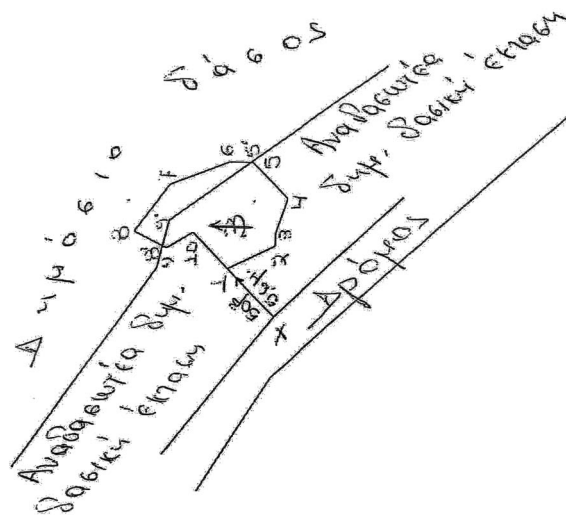 Δημόσιο δάσος
Αναδασωτέα
δημ. δασική έκταση
Αναδασωτέα δημ.
δασική έκταση
Δρόμος
Χ
1
2
3
4
5
5'
6
7
8
8'
9
9'
10
Β